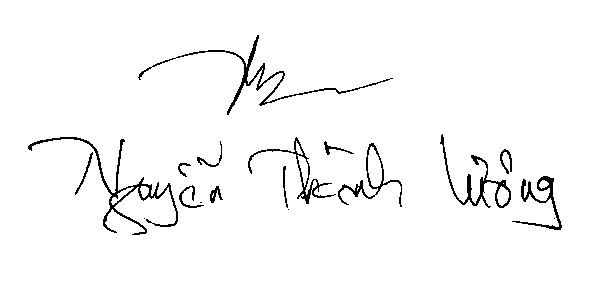 Nguyễn Thành Vương